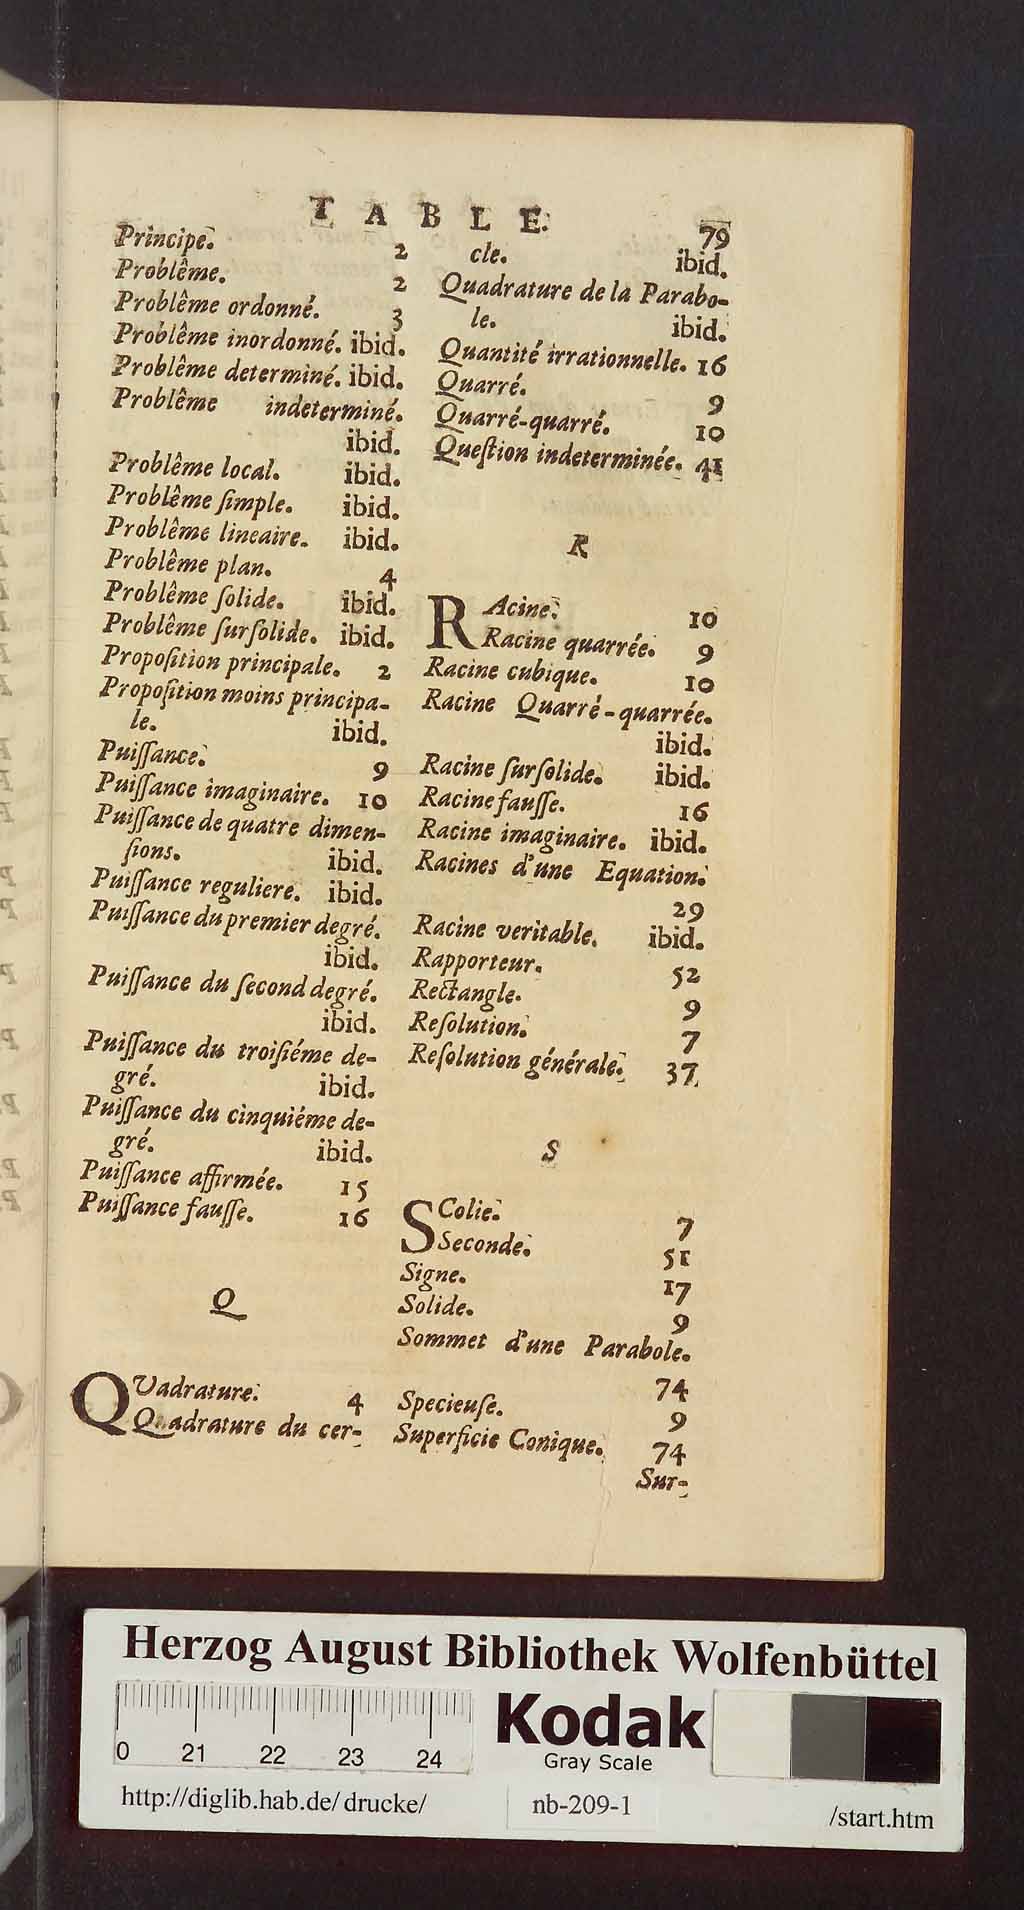 TABLE.
79
Principe. 2
Problême. 2
Problême ordonné. 3
Problême inordonné. ibid.
Problême determiné. ibid.
Problême indeterminé.
ibid.
Problême local. ibid.
Problême ſimple. ibid.
Problême lineaire. ibid.
Problême plan. 4
Problême ſolide. ibid.
Problême ſurſolide. ibid.
Propoſition principale. 2
Propoſition moins principa-
le. ibid.
Puiſſance. 9
Puiſſance imaginaire. 10
Puiſſance de quatre dimen-
ſions. ibid.
Puiſſance reguliere. ibid.
Puiſſance du premier degré.
ibid.
Puiſſance du ſecond degré.
ibid.
Puiſſance du troiſiéme de-
gré. ibid.
Puiſſance du cinquiéme de-
gré. ibid.
Puiſſance affirmée. 15
Puiſſance fauſſe. 16
Q
QVadrature. 4
Quadrature du cer-
cle. ibid.
Quadrature de la Parabo-
le. ibid.
Quantité irrationnelle. 16
Quarré. 9
Quarré-quarré. 10
Queſtion indeterminée. 41
R
RAcine. 10
Racine quarrée. 9
Racine cubique. 10
Racine Quarré-quarrée.
ibid.
Racine ſurſolide. ibid.
Racine fauſſe. 16
Racine imaginaire. ibid.
Racines d'une Equation.
29
Racine veritable. ibid.
Rapporteur. 52
Rectangle. 9
Reſolution. 7
Reſolution générale. 37
S
SColie. 7
Seconde. 51
Signe. 17
Solide. 9
Sommet d'une Parabole.
74
Specieuſe. 9
Superficie Conique. 74
Sur-
Herzog August Bibliothek Wolfenbüttel
0 21 22 23 24
Kodak
Gray Scale
http://diglib.hab.de/drucke/
nb-209-1
/start.htm